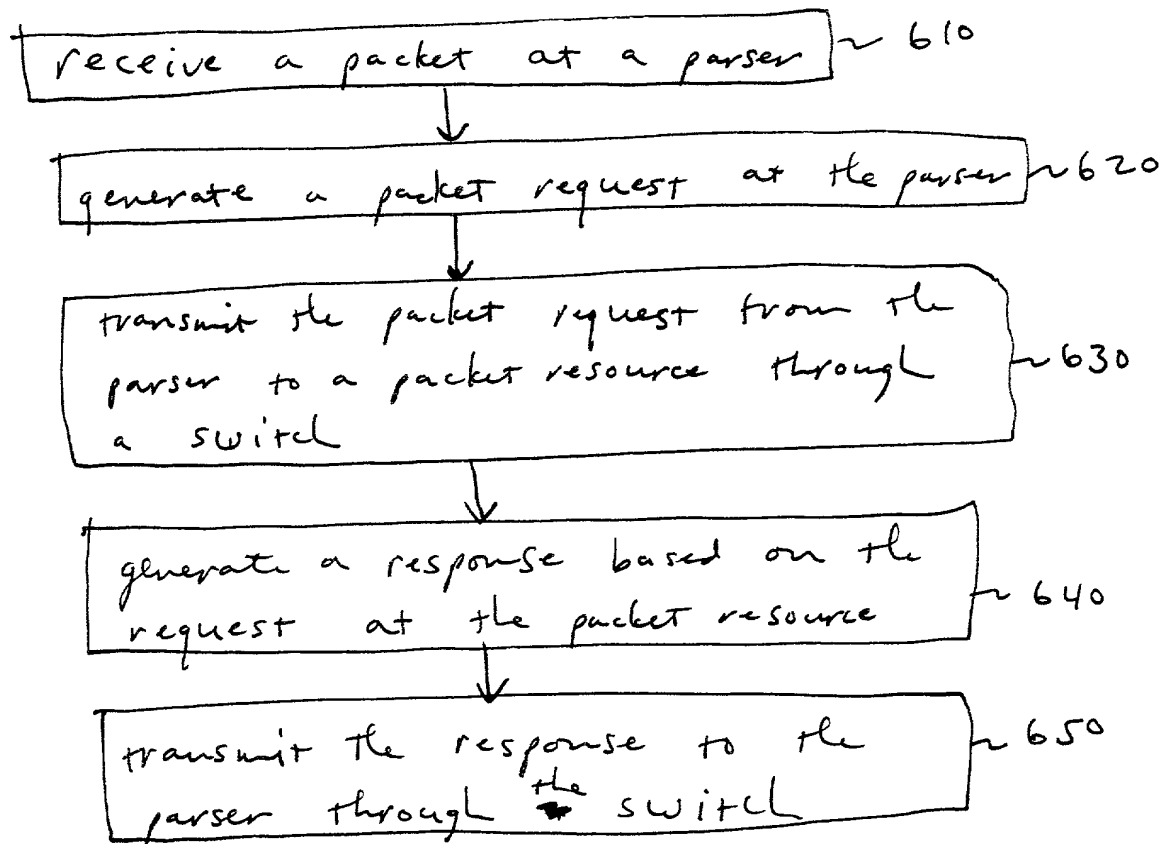 receive a packet at a parser ~ 610
generate a packet request at the parser ~ 620
transmit the packet request from the
parser to a packet resource through
a switch
~ 630
generate a response based on the
request at the packet resource
~ 640
transmit the response to the
parser through the switch
~ 650